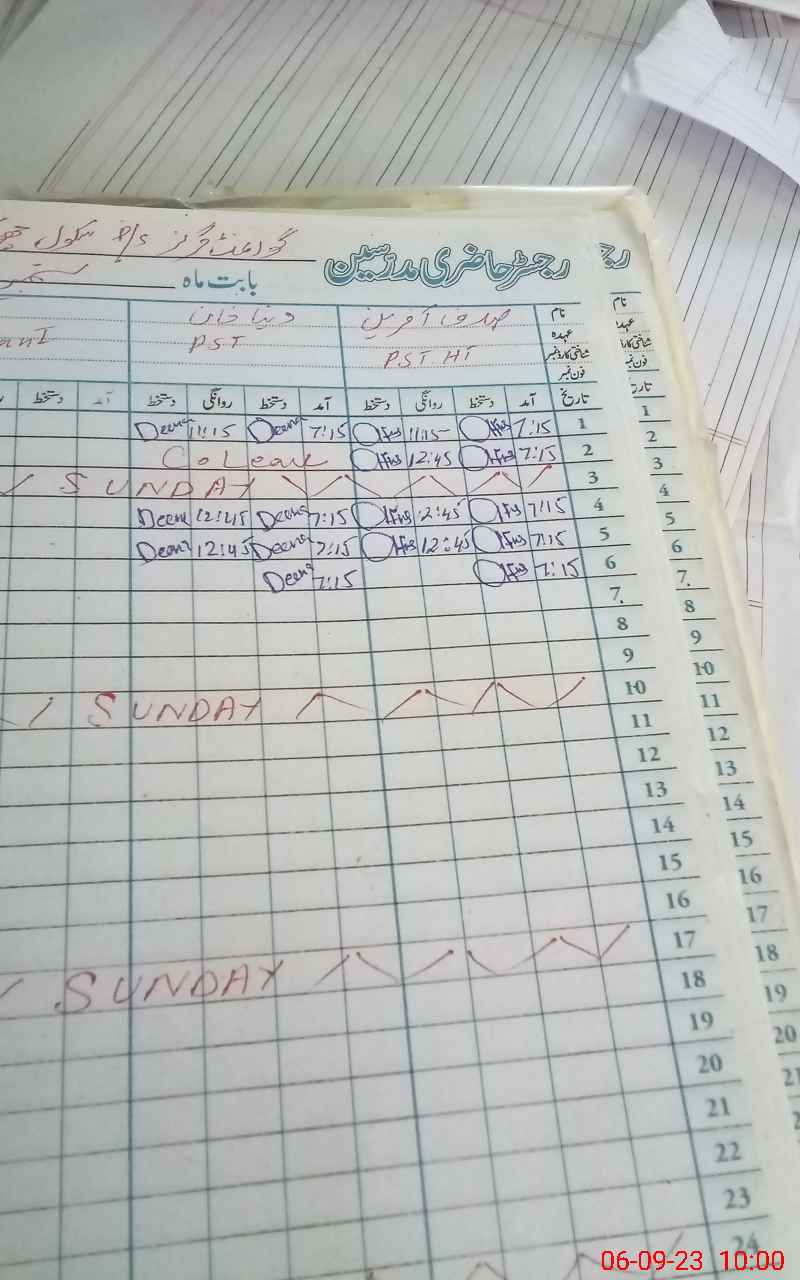 رجسٹر حاضری مدرسین گورنمنٹ گرلز P/S سکول
بابت ماہ ستمبر
نام دنیا خان
عہدہ PST HT PST
شناختی کارڈ نمبر
فون نمبر
تاریخ آمد دستخط روانگی دستخط آمد دستخط روانگی دستخط آمد دستخط
1 7:15 11:15 7:15 Deena 11:15 Deena
2 7:15 12:45 Leave
3 SUNDAY
4 7:15 12:45 7:15 Deena 12:45 Deena
5 7:15 12:45 7:15 Deena 12:45 Deena
6 7:15 7:15 Deena
7
8
9
10 SUNDAY
11
12
13
14
15
16
17 SUNDAY
18
19
20
21
22
23
24
نام
عہدہ
شناختی کارڈ
فون نمبر
تاریخ
1
2
3
4
5
6
7
8
9
10
11
12
13
14
15
16
17
18
19
20
21
06-09-23 10:00